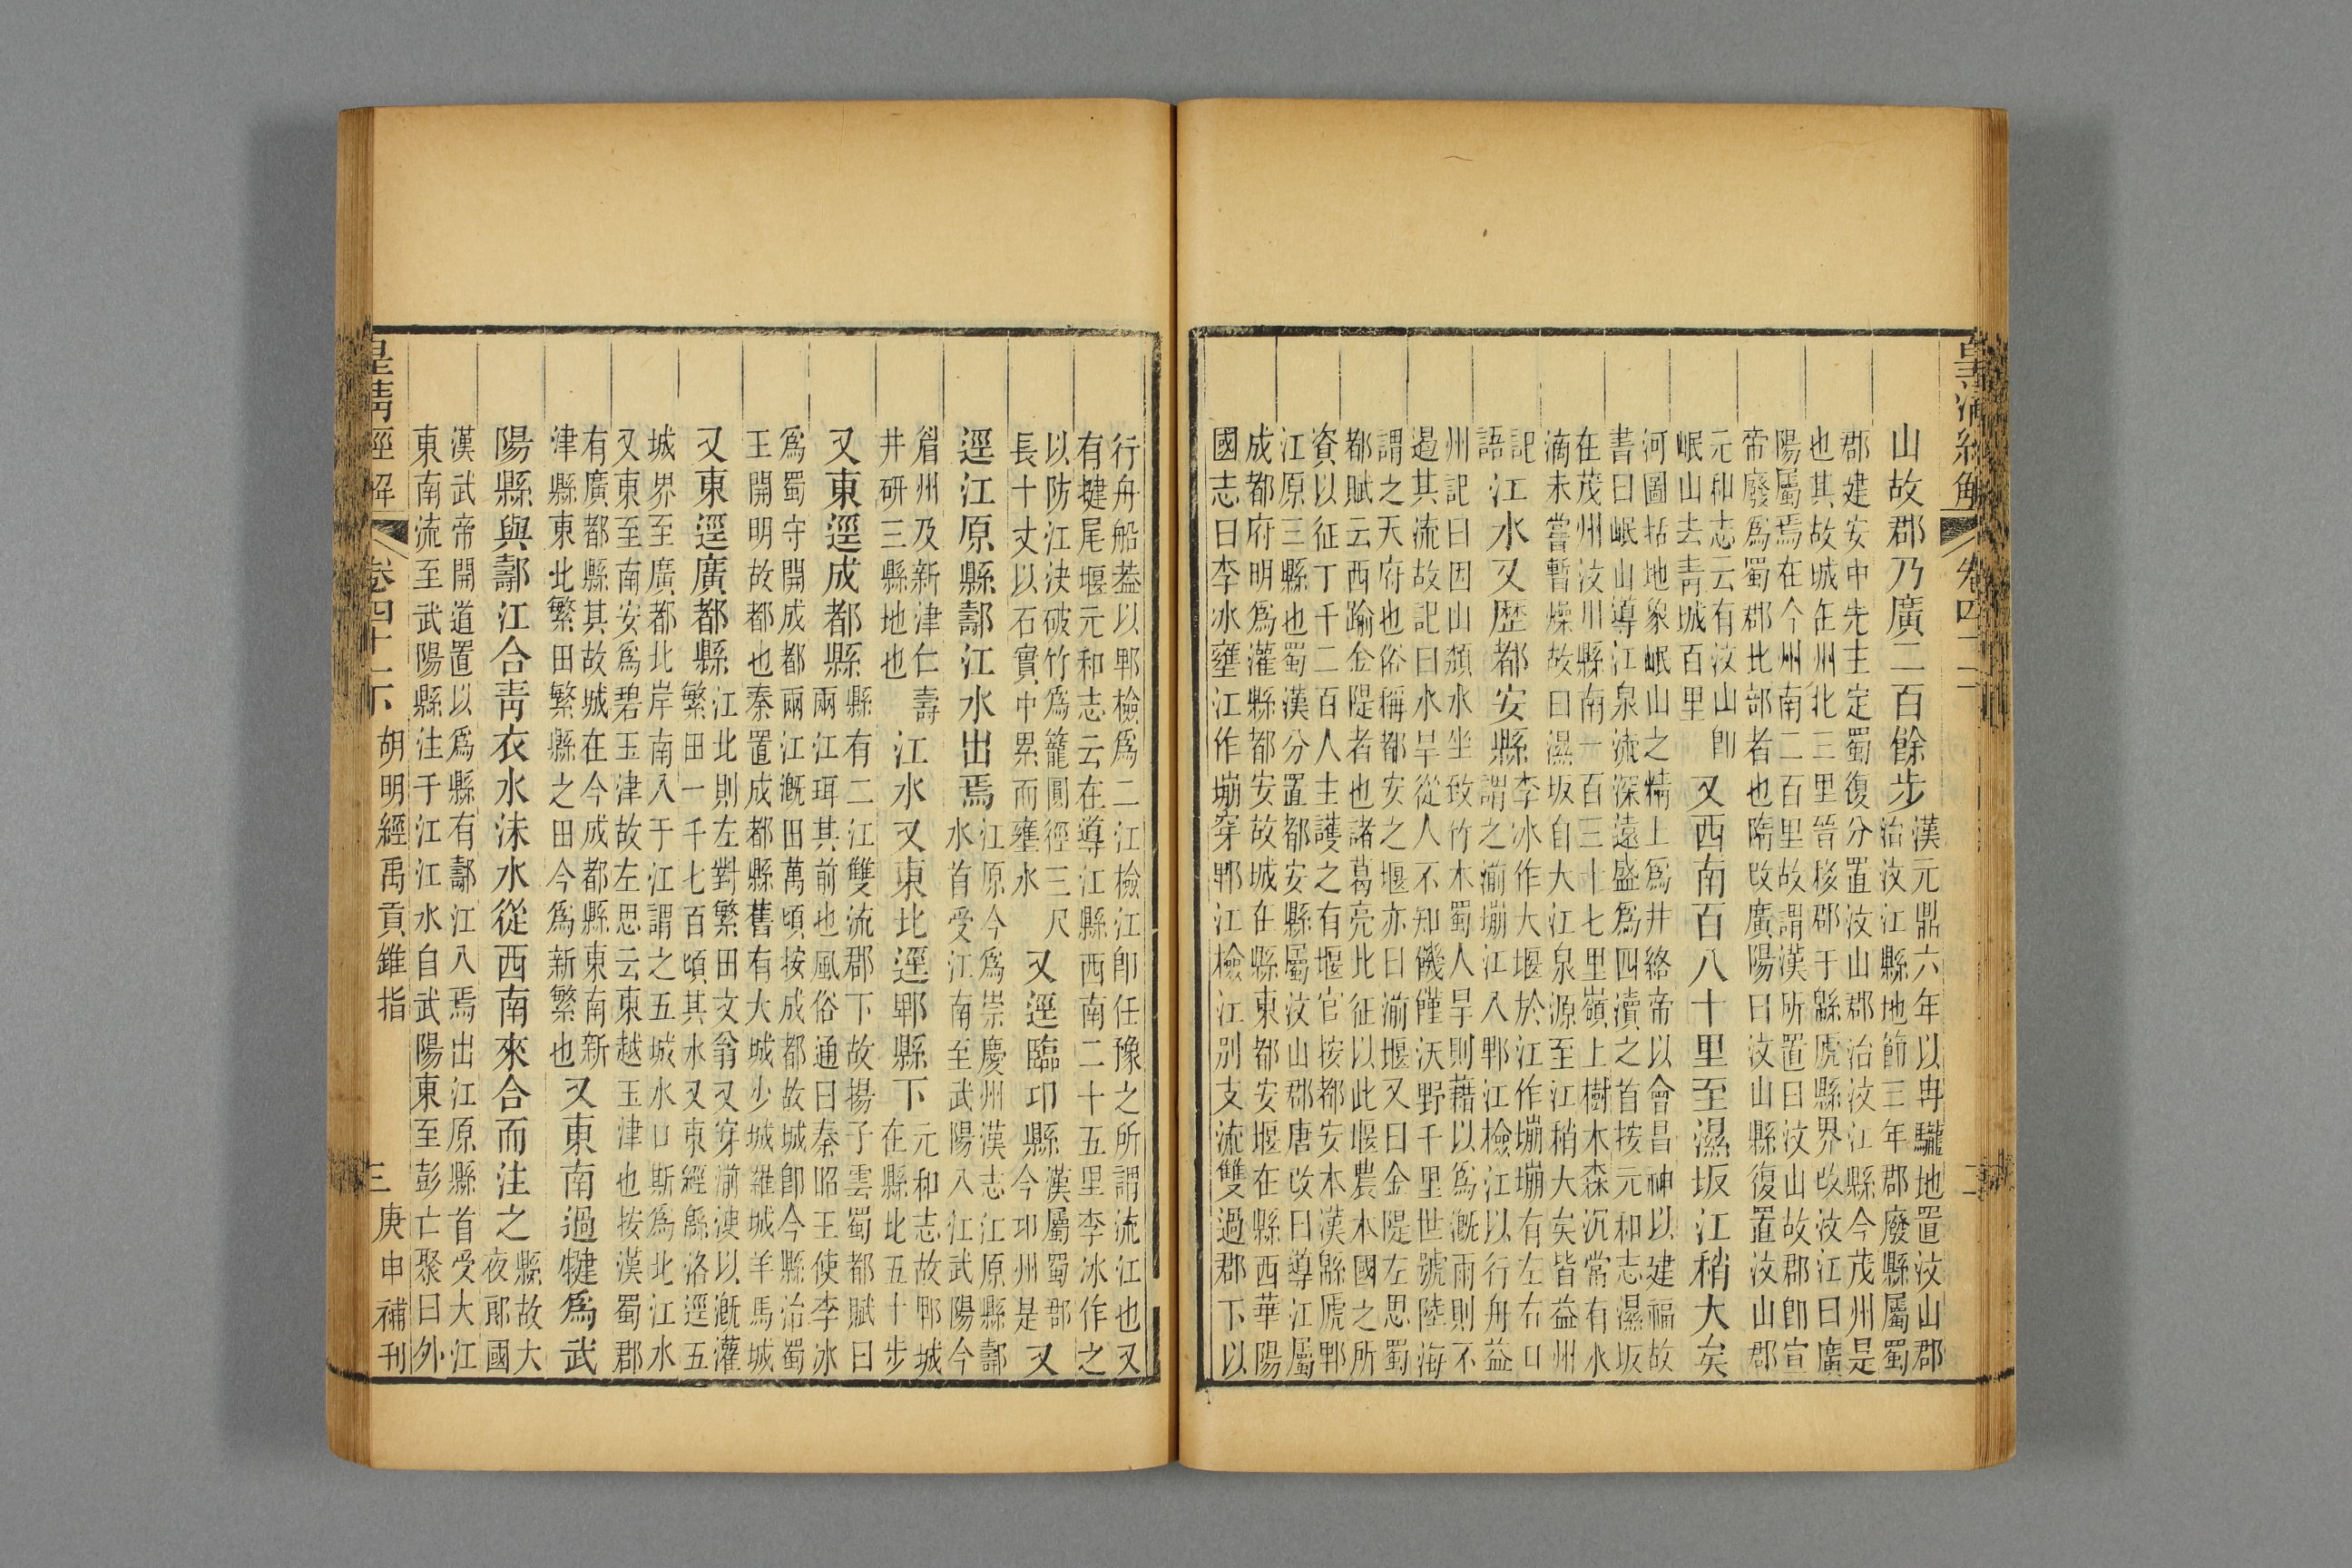 皇清經解 卷四十二 二
山故郡乃廣二百餘步 漢元鼎六年以冉駹地置汶山郡
治汶江縣地節三年郡廢縣屬蜀
郡建安中先主定蜀復分置汶山郡治汶江縣今茂州是
也其故城在州北三里晉移郡于緜虒縣界改汶江曰廣
陽屬焉在今州南二百里故謂漢所置曰汶山故郡卽宣
帝廢爲蜀郡北部者也隋改廣陽曰汶山縣復置汶山郡
元和志云有汶山卽
岷山去靑城百里 又西南百八十里至濕坂江稍大矣
河圖括地象岷山之精上爲井絡帝以會昌神以建福故
書曰岷山導江泉流深遠盛爲四瀆之首按元和志濕坂
在茂州汶川縣南一百三十七里嶺上樹木森沉常有水
滴未嘗暫燥故曰濕坂自大江泉源至江稍大矣皆益州
記
語 江水又歷都安縣 李冰作大堰於江作堋堋有左右口
謂之湔堋江入郫江檢江以行舟益
州記曰因山頹水坐致竹木蜀人旱則藉以爲漑雨則不
遏其流故記曰水旱從人不知饑饉沃野千里世號陸海
謂之天府也俗稱都安之堰亦曰湔堰又曰金隄左思蜀
都賦云西踰金隄者也諸葛亮北征以此堰農本國之所
資以征丁千二百人主護之有堰官按都安本漢緜虒郫
江原三縣也蜀漢分置都安縣屬汶山郡唐改曰導江屬
成都府明爲灌縣都安故城在縣東都安堰在縣西華陽
國志曰李冰壅江作堋穿郫江檢江別支流雙過郡下以
行舟船葢以郫檢爲二江檢江卽任豫之所謂流江也又
有楗尾堰元和志云在導江縣西南二十五里李冰作之
以防江決破竹爲籠圓徑三尺
長十丈以石實中累而壅水 又逕臨邛縣 漢屬蜀郡
今邛州是 又
逕江原縣鄯江水出焉 江原今爲崇慶州漢志江原縣鄯
水首受江南至武陽入江武陽今
眉州及新津仁壽
井研三縣地也 江水又東北逕郫縣下 元和志故郫城
在縣北五十步
又東逕成都縣 縣有二江雙流郡下故揚子雲蜀都賦曰
兩江珥其前也風俗通曰秦昭王使李冰
爲蜀守開成都兩江漑田萬頃按成都故城卽今縣治蜀
王開明故都也秦置成都縣舊有大城少城羅城羊馬城
又東逕廣都縣 江北則左對繁田文翁又穿湔洩以漑灌
繁田一千七百頃其水又東經緜洛逕五
城界至廣都北岸南入于江謂之五城水口斯爲北江水
又東至南安爲碧玉津故左思云東越玉津也按漢蜀郡
有廣都縣其故城在今成都縣東南新
津縣東北繁田繁縣之田今爲新繁也 又東南過犍爲武
陽縣與鄯江合靑衣水沬水從西南來合而注之 縣故大
夜郞國
漢武帝開道置以爲縣有鄯江入焉出江原縣首受大江
東南流至武陽縣注于江江水自武陽東至彭亡聚曰外
皇淸經解 卷四十二下 胡明經禹貢錐指 三 庚申補刊